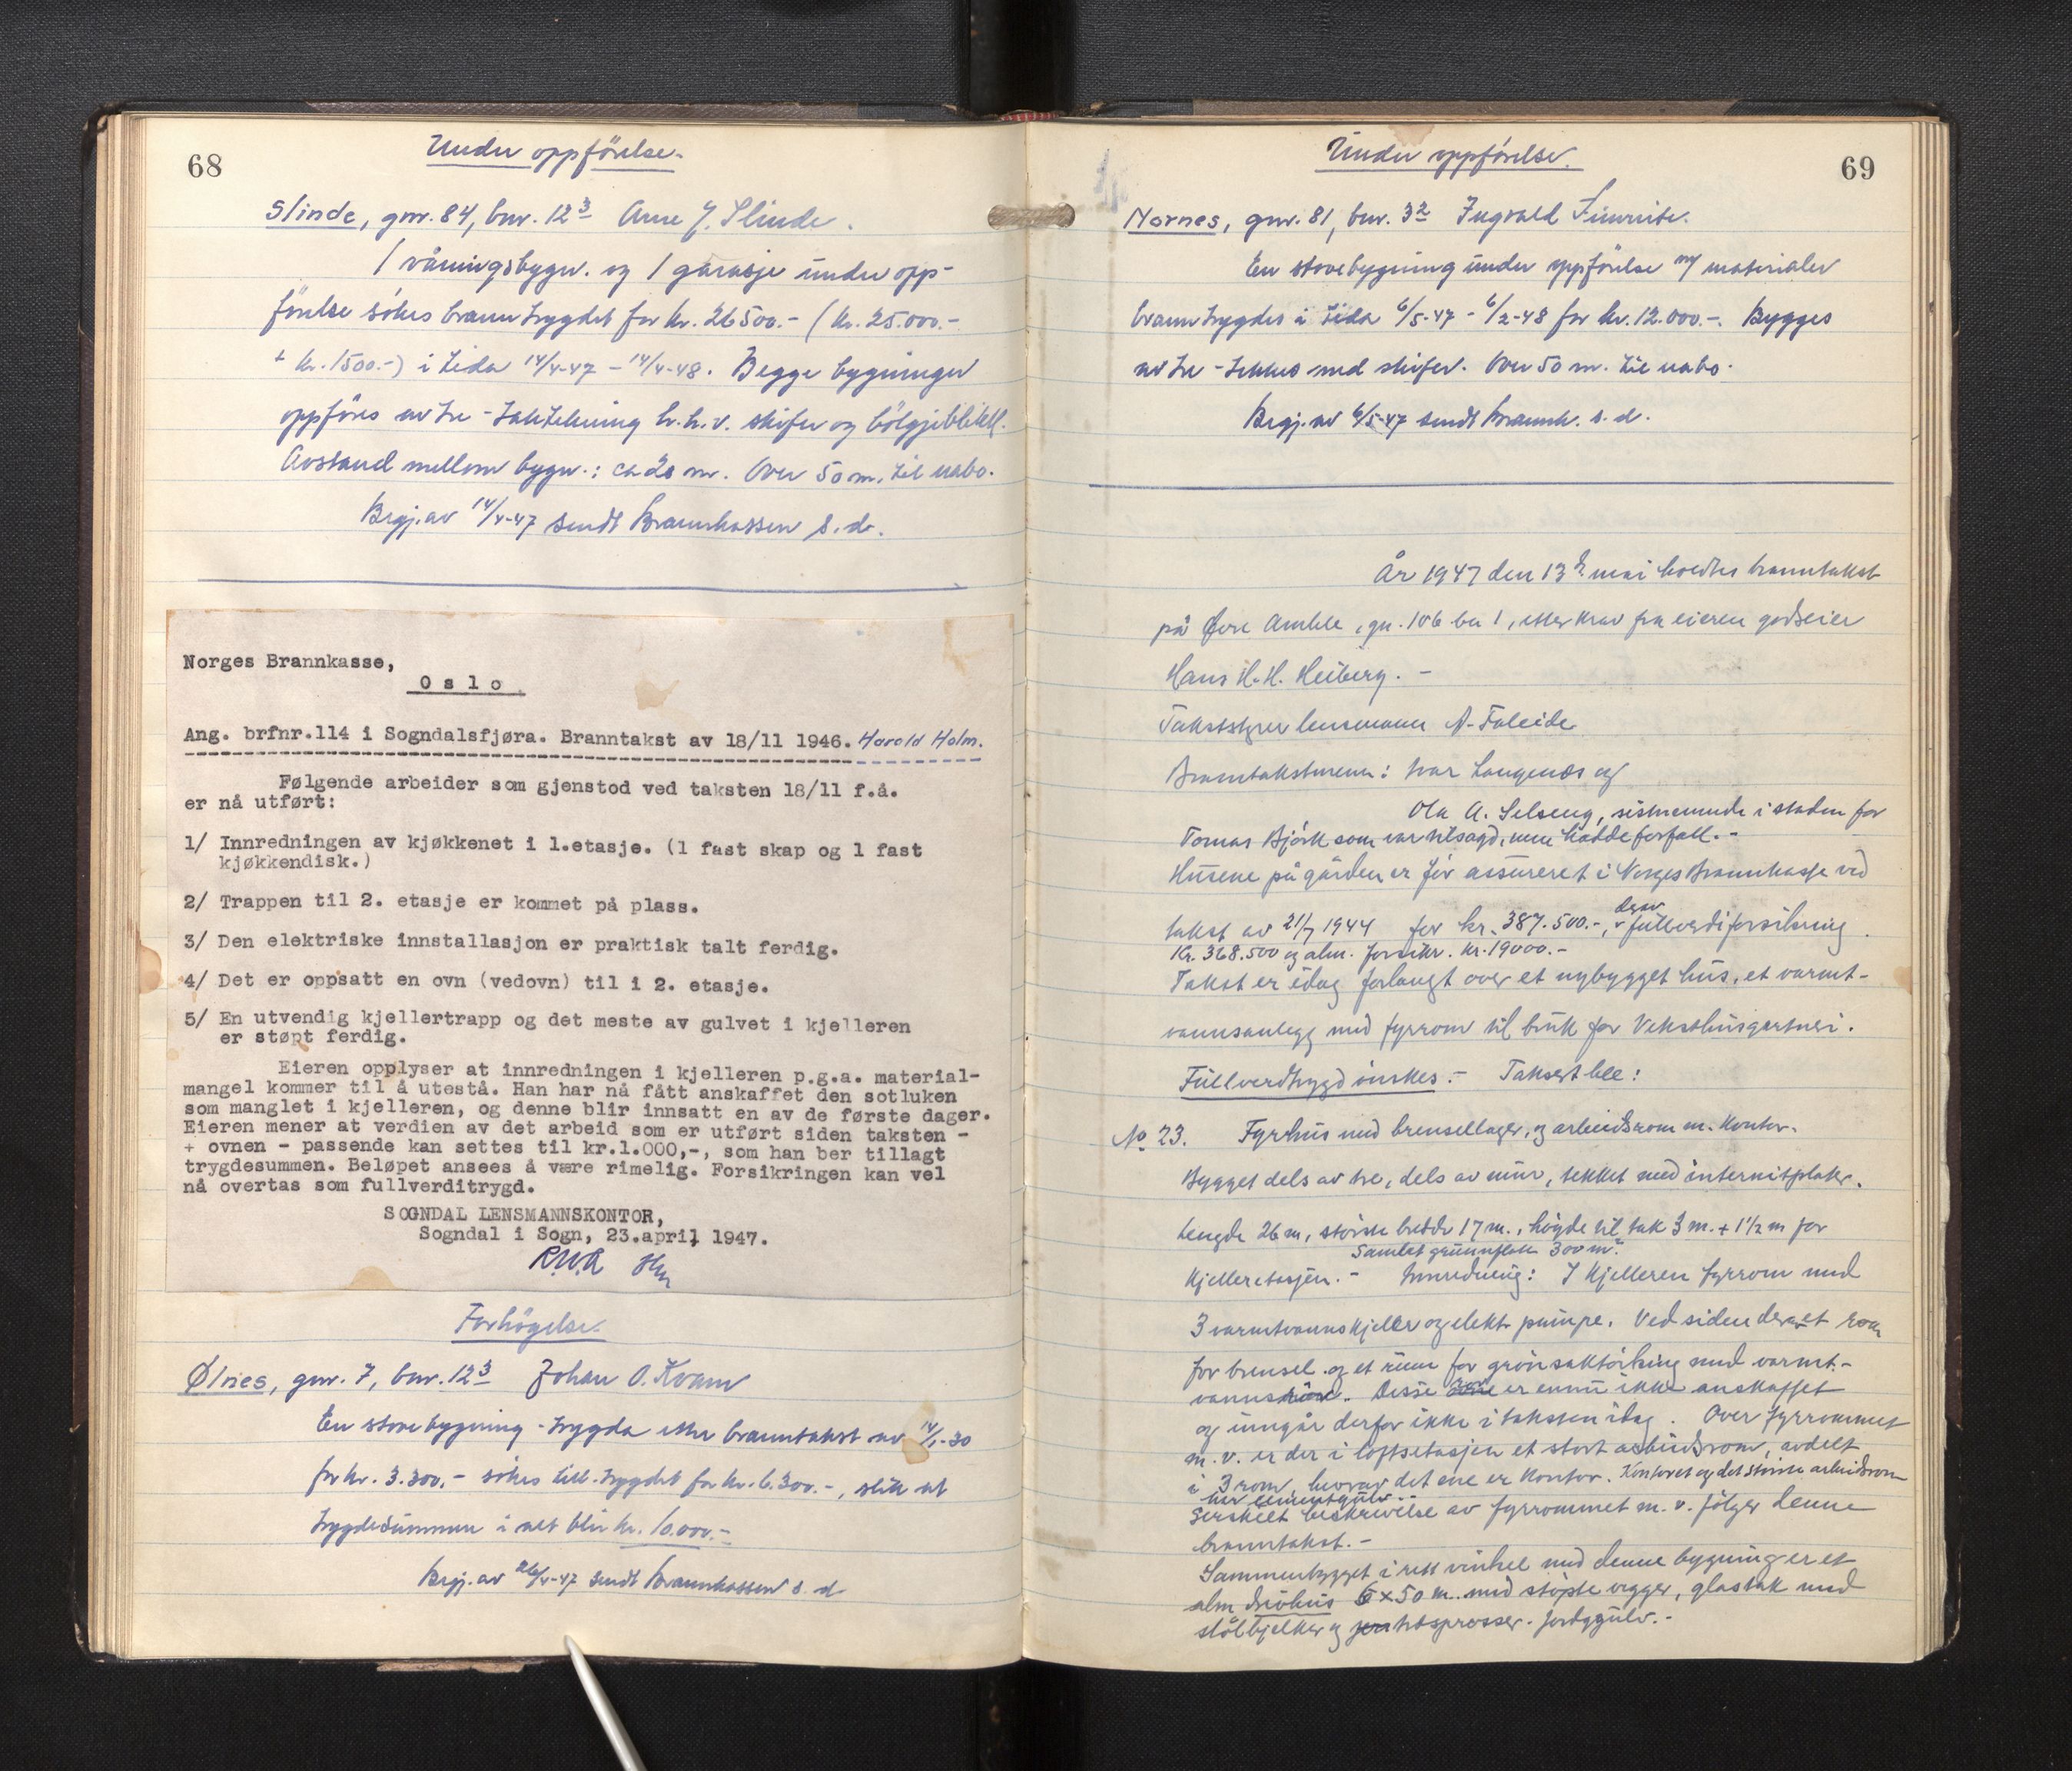 68
Under oppförelse.
Slinde, gnr. 84, bnr. 12³ Arne J. Slinde.
1 våningsbygn. og 1 garasje under opp-
förelse sökes branntrygdet for kr. 26500.- (kr. 25.000.-
+ kr. 1500.-) i tida 14/4-47 - 14/4-48. Begge bygninger
oppföres av tre - taktekning h.h.v. skifer og bölgjeblikk.
Avstand mellom bygn.: ca 20 m. Over 50 m. til nabo.
Brgj. av 14/4-47 sendt Brannkassen s.d.
Norges Brannkasse,
Oslo.
Ang. brfnr.114 i Sogndalsfjøra. Branntakst av 18/11 1946. Harald Holm.
Følgende arbeider som gjenstod ved taksten 18/11 f.å.
er nå utført:
1/ Innredningen av kjøkkenet i 1.etasje. (1 fast skap og 1 fast
kjøkkendisk.)
2/ Trappen til 2. etasje er kommet på plass.
3/ Den elektriske innstallasjon er praktisk talt ferdig.
4/ Det er oppsatt en ovn (vedovn) til i 2. etasje.
5/ En utvendig kjellertrapp og det meste av gulvet i kjelleren
er støpt ferdig.
Eieren opplyser at innredningen i kjelleren p.g.a. material-
mangel kommer til å utestå. Han har nå fått anskaffet den sotluken
som manglet i kjelleren, og denne blir innsatt en av de første dager.
Eieren mener at verdien av det arbeid som er utført siden taksten -
+ ovnen - passende kan settes til kr.1.000,-, som han ber tillagt
trygdesummen. Beløpet ansees å være rimelig. Forsikringen kan vel
nå overtas som fullverditrygd.
SOGNDAL LENSMANNSKONTOR,
Sogndal i Sogn, 23.april 1947.
Forhögelse.
Ølnes, gnr. 7, bnr. 12³ Johan O. Kvam
En stovebygning - trygda etter branntakst av 14/1-30
for kr. 3.300.- sökes till.trygdet for kr. 6.300.-, slik at
trygdesummen i alt blir kr. 10.000.-
Brgj. av 26/4-47 sendt Brannkassen s.d.
69
Under oppförelse.
Nornes, gnr. 81, bnr. 3² Ingvald Fimreite.
En stovebygning under oppförelse m/ materialer
branntrygdes i tida 6/5-47 - 6/2-48 for kr. 12.000.-. Bygges
av tre - tekkes med skifer. Over 50 m. til nabo.
Brgj. av 6/5-47 sendt Brannk. s.d.
År 1947 den 13de mai holdtes branntakst
på Øvre Amble, gn. 106 bn 1, etter krav fra eieren godseier
Hans H. H. Heiberg. -
Takststyrer lensmann A. Faleide
Branntakstmenn: Ivar Langenes og
Ola A. Selseng, sistnemnde i staden for
Tomas Björk som var tilsagd, men hadde forfall. -
Husene på gården er för assureret i Norges Brannkasse ved
takst av 21/7 1944 for kr. 387.500.-, derav fullverdiforsikring
Kr. 368.500 og alm. forsikr. kr. 19000.-
Takst er idag forlangt over et nybygget hus, et varmt-
vannsanlegg med fyrrom til bruk for Veksthusgartneri.
Fullverditrygd önskes. - Taksert ble:
No 23. Fyrhus med brensellager, og arbeidsrom m. Kontor.
Bygget dels av tre, dels av mur, tekket med internitplater.
Lengde 26 m, störste bredde 17 m., höyde til tak 3 m. + 1½ m for
Samlet grunnflate 300 m².
Kjelleretasjen. - Innredning: I Kjelleren fyrrom med
3 varmtvannskjeler og elektr. pumpe. Ved siden derav et rom
for brensel og et rum for grönsaktörking med varmt-
vanns. Disse er ennu ikke anskaffet
og inngår derfor ikke i taksten idag. Over fyrrommet
m. v. er der i loftsetasjen et stort arbeidsrom, avdelt
i 3 rom, hvorav det ene er Kontor. Kontoret og det störste arbeidsrom
har cementgulv.
Serskilt beskrivelse av fyrrommet m. v. fölger denne
branntakst. -
Sammenbygget i rett vinkel med denne bygning er et
alm drivhus 6 x 50 m. med stöpte vegger, glastak med
stålbjelker og tresprosser. Jordgulv. -